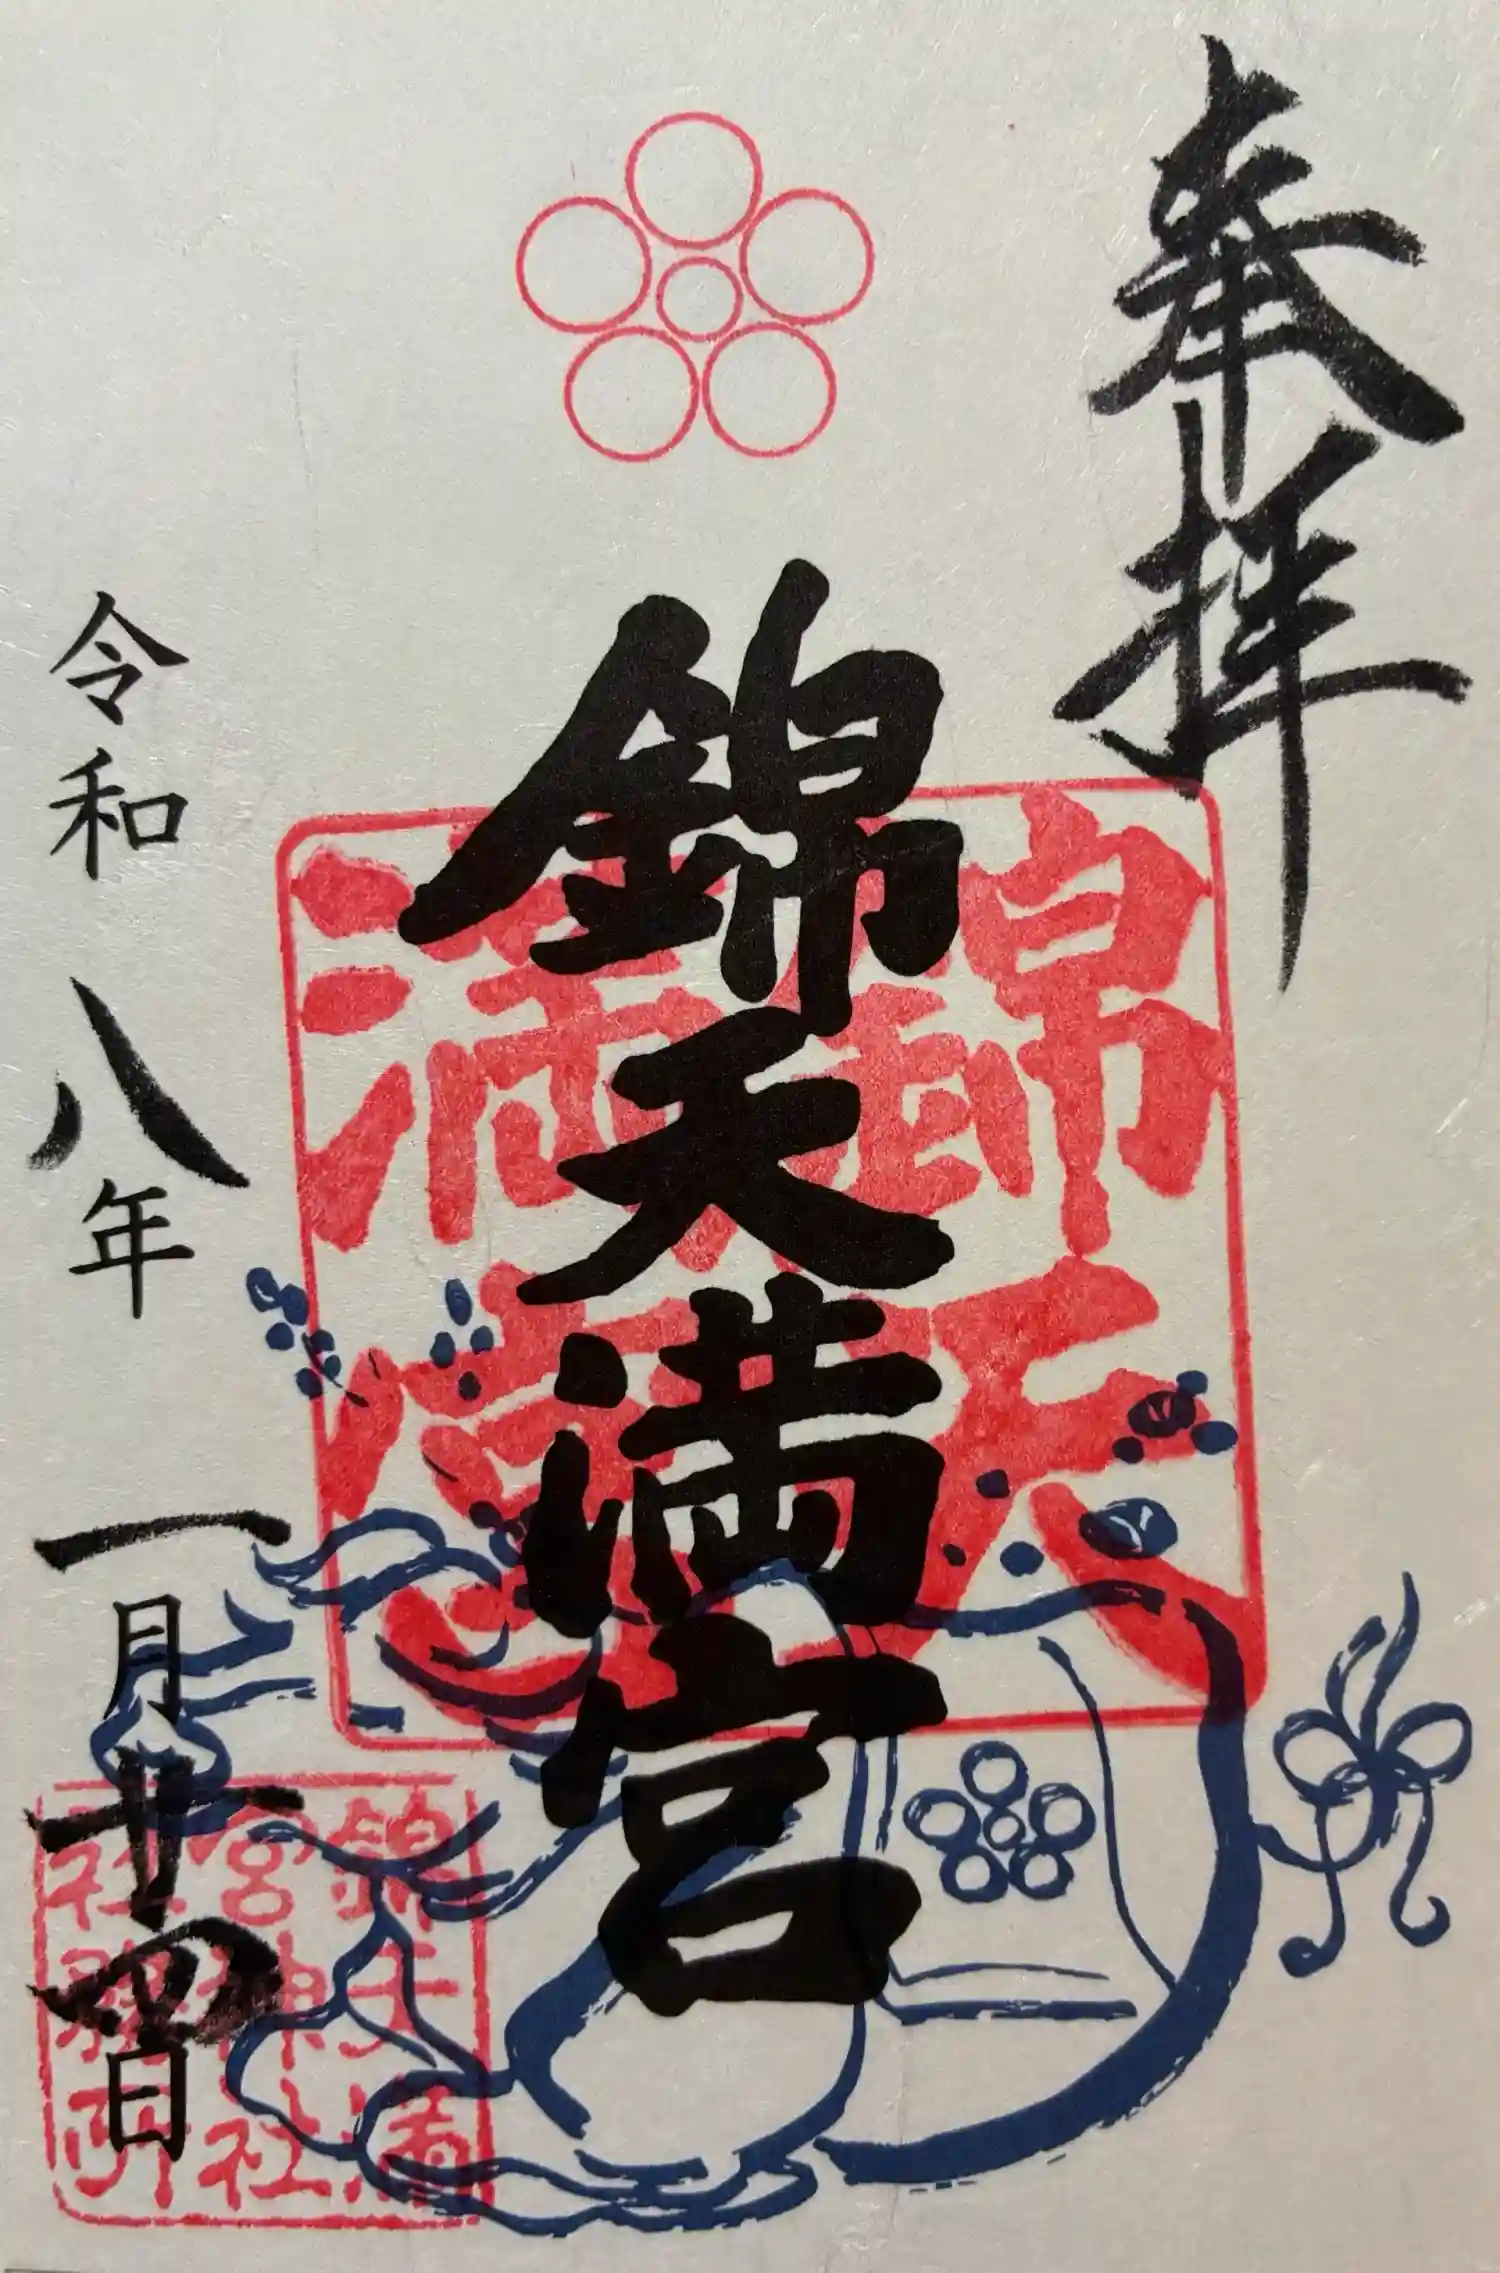 奉拝
錦天満宮
錦天満宮
令和八年一月十四日
錦天満
宮神社
社務所